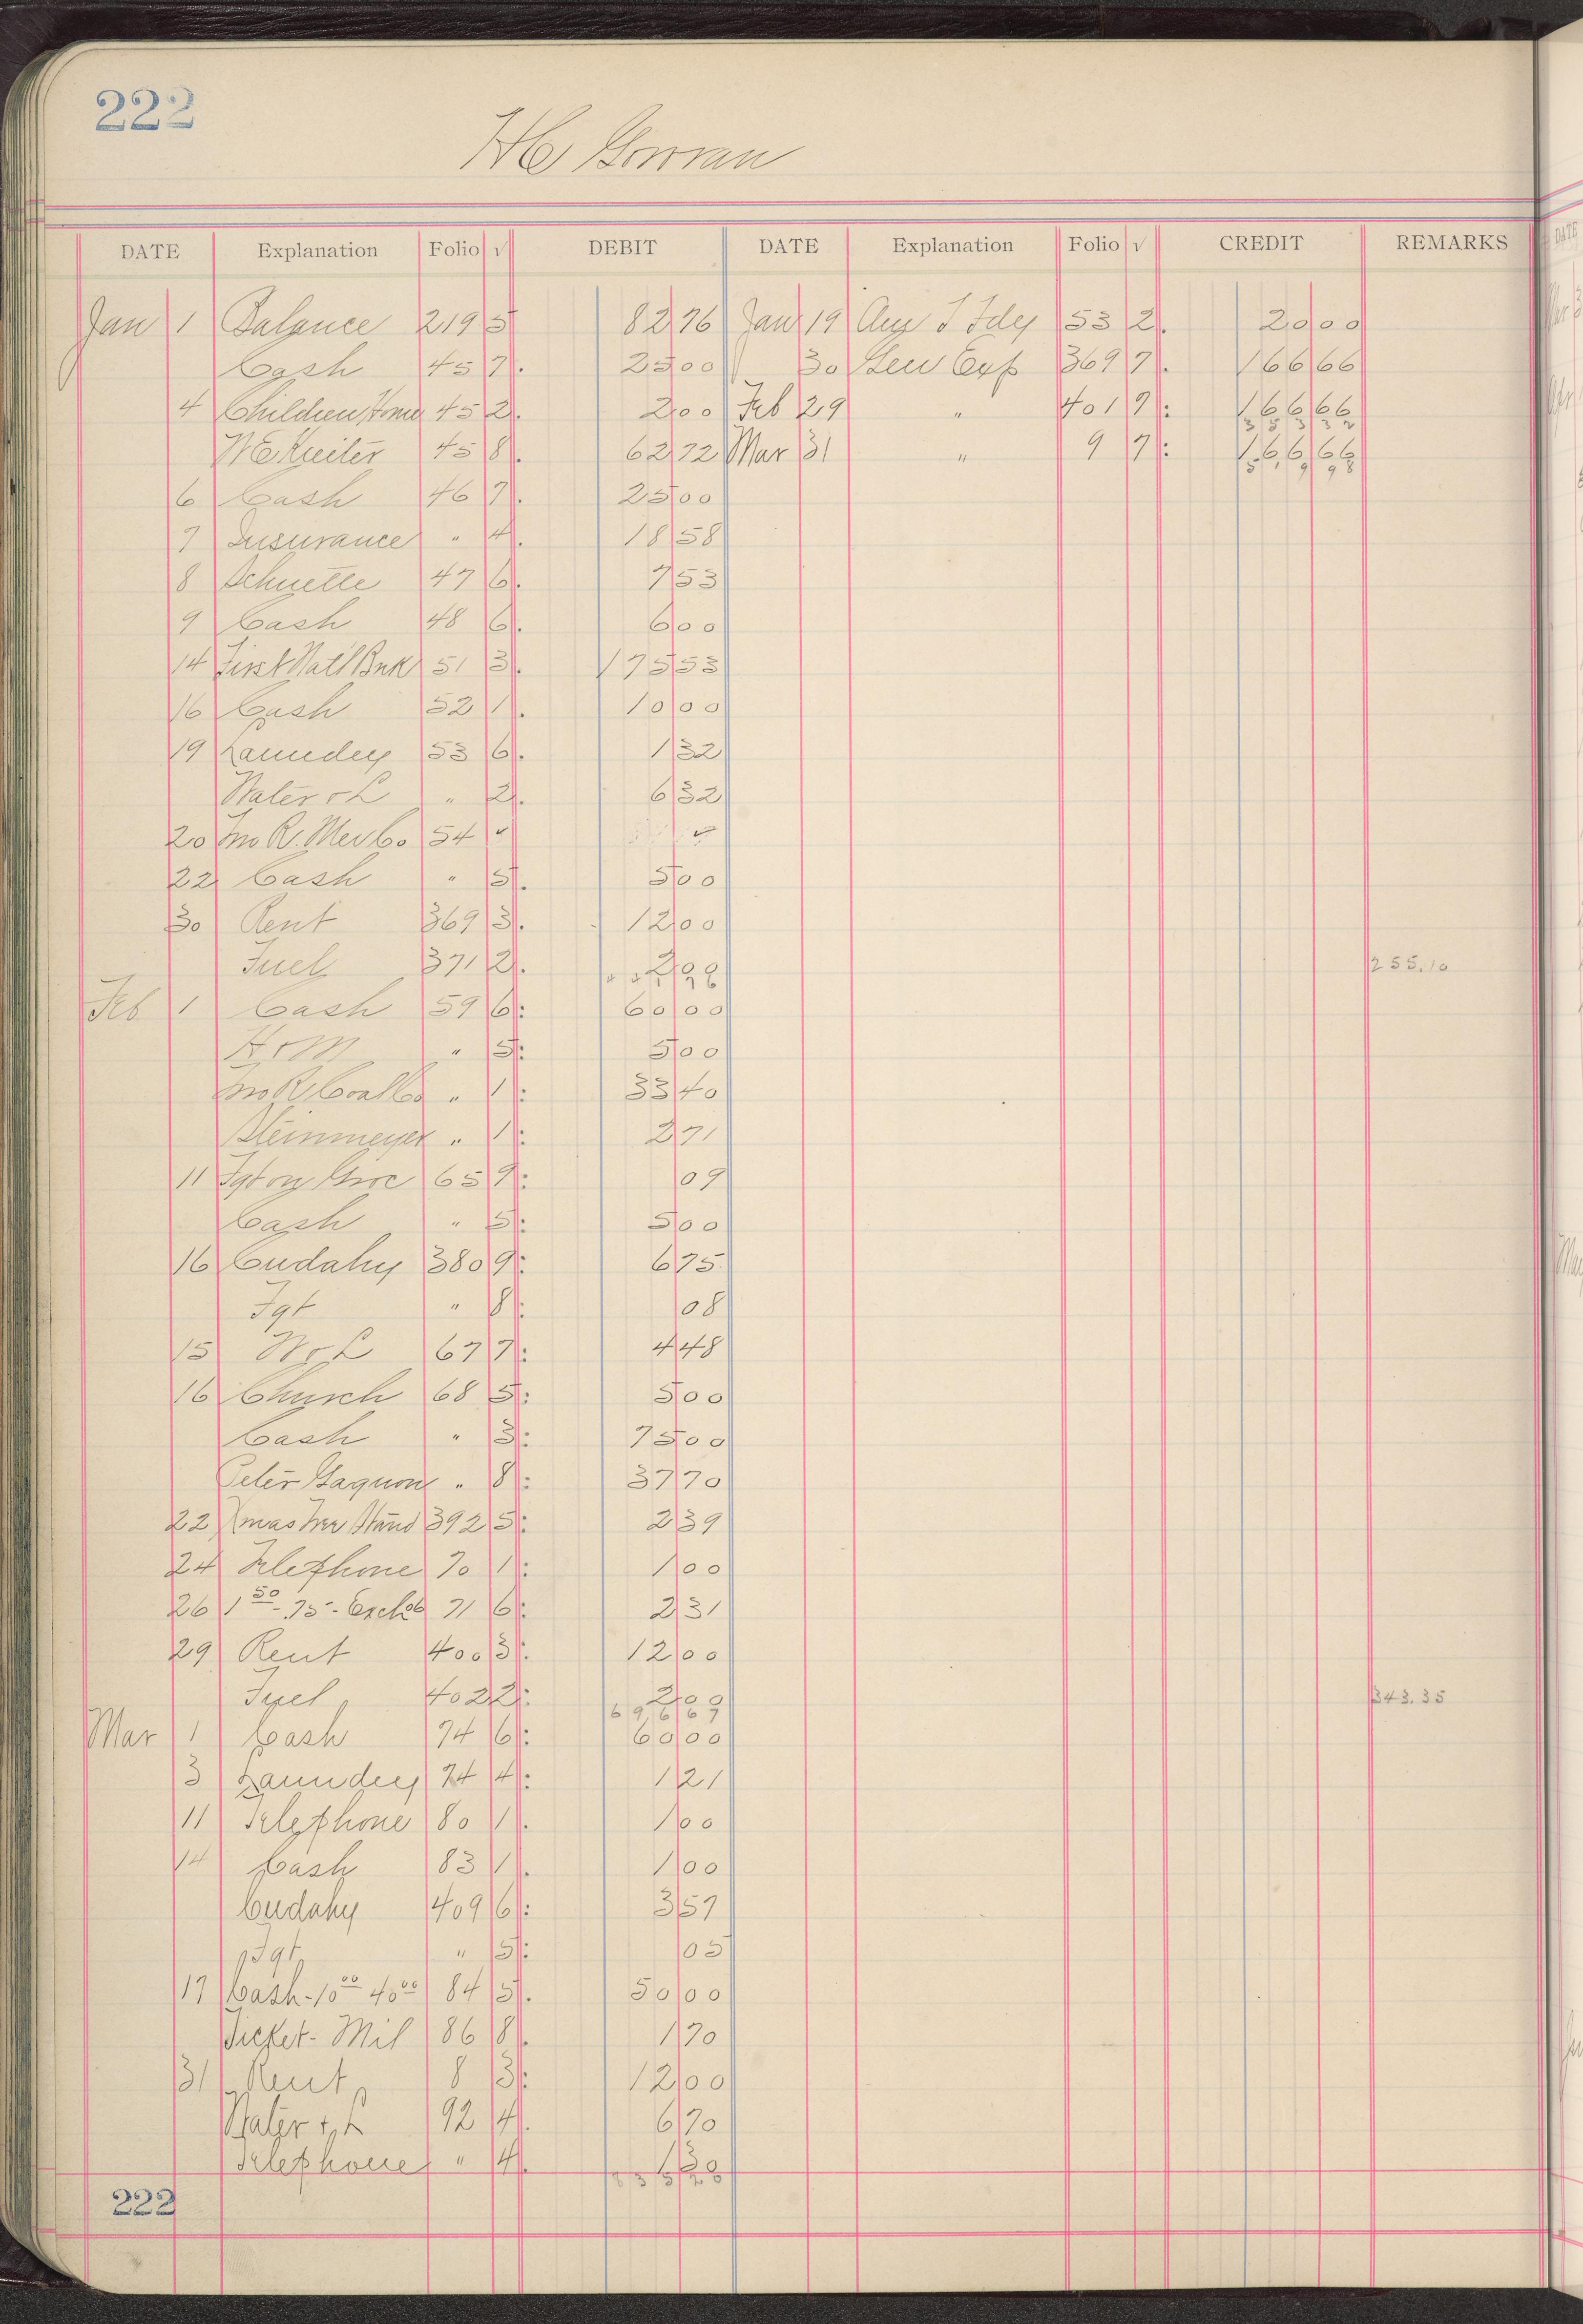 222
HC Gorran
DATE Explanation Folio √ DEBIT DATE Explanation Folio √ CREDIT REMARKS
Jan 1 Balance 219 5 82 76 Jan 19 53 2. 20 00
Cash 45 7. 25 00 30 Gen Exp 369 7. 166 66
4 Children Home 45 2. 2 00 Feb 29 " 401 7: 166 66
45 8. 62 72 Mar 31 " 9 7: 166 66
6 Cash 46 7. 25 00
7 Insurance " 4. 18 58
8 Schuette 47 6. 7 53
9 Cash 48 6. 6 00
14 First Natl Bnk 51 3. 175 53
16 Cash 52 1. 10 00
19 Laundry 53 6. 1 32
Water & L " 2. 6 32
20 Jno R. Mer Co 54 √ √
22 Cash " 5. 5 00
30 Rent 369 3. 12 00
Fuel 371 2. 255.10
Feb 1 Cash 59 6: 60 00
H & M " 5: 5 00
Jno R Coal Co " 1: 33 40
Steinmeyer " 1: 2 71
11 Fgt on Groc 65 9: 09
Cash " 5: 5 00
16 Cudahy 380 9: 6 75
Fgt " 8: 08
15 W & L 67 7: 4 48
16 Church 68 5: 5 00
Cash " 3: 75 00
Peter Gagnon " 8: 37 70
22 Xmas Tree Stand 392 5: 2 39
24 Telephone 70 1: 1 00
26 1 50 - .75 - Exch 06 71 6: 2 31
29 Rent 400 3: 12 00
Fuel 402 2: 2 00 343.35
696 67
Mar 1 Cash 74 6: 60 00
3 Laundry 74 4: 1 21
11 Telephone 80 1. 1 00
14 Cash 83 1. 1 00
Cudahy 409 6: 3 57
Fgt " 5: 05
17 Cash - 10 00 40 00 84 5. 50 00
Ticket - Mil 86 8. 1 70
31 Rent 8 3: 12 00
Water & L 92 4. 6 70
Telephone " 4.
222